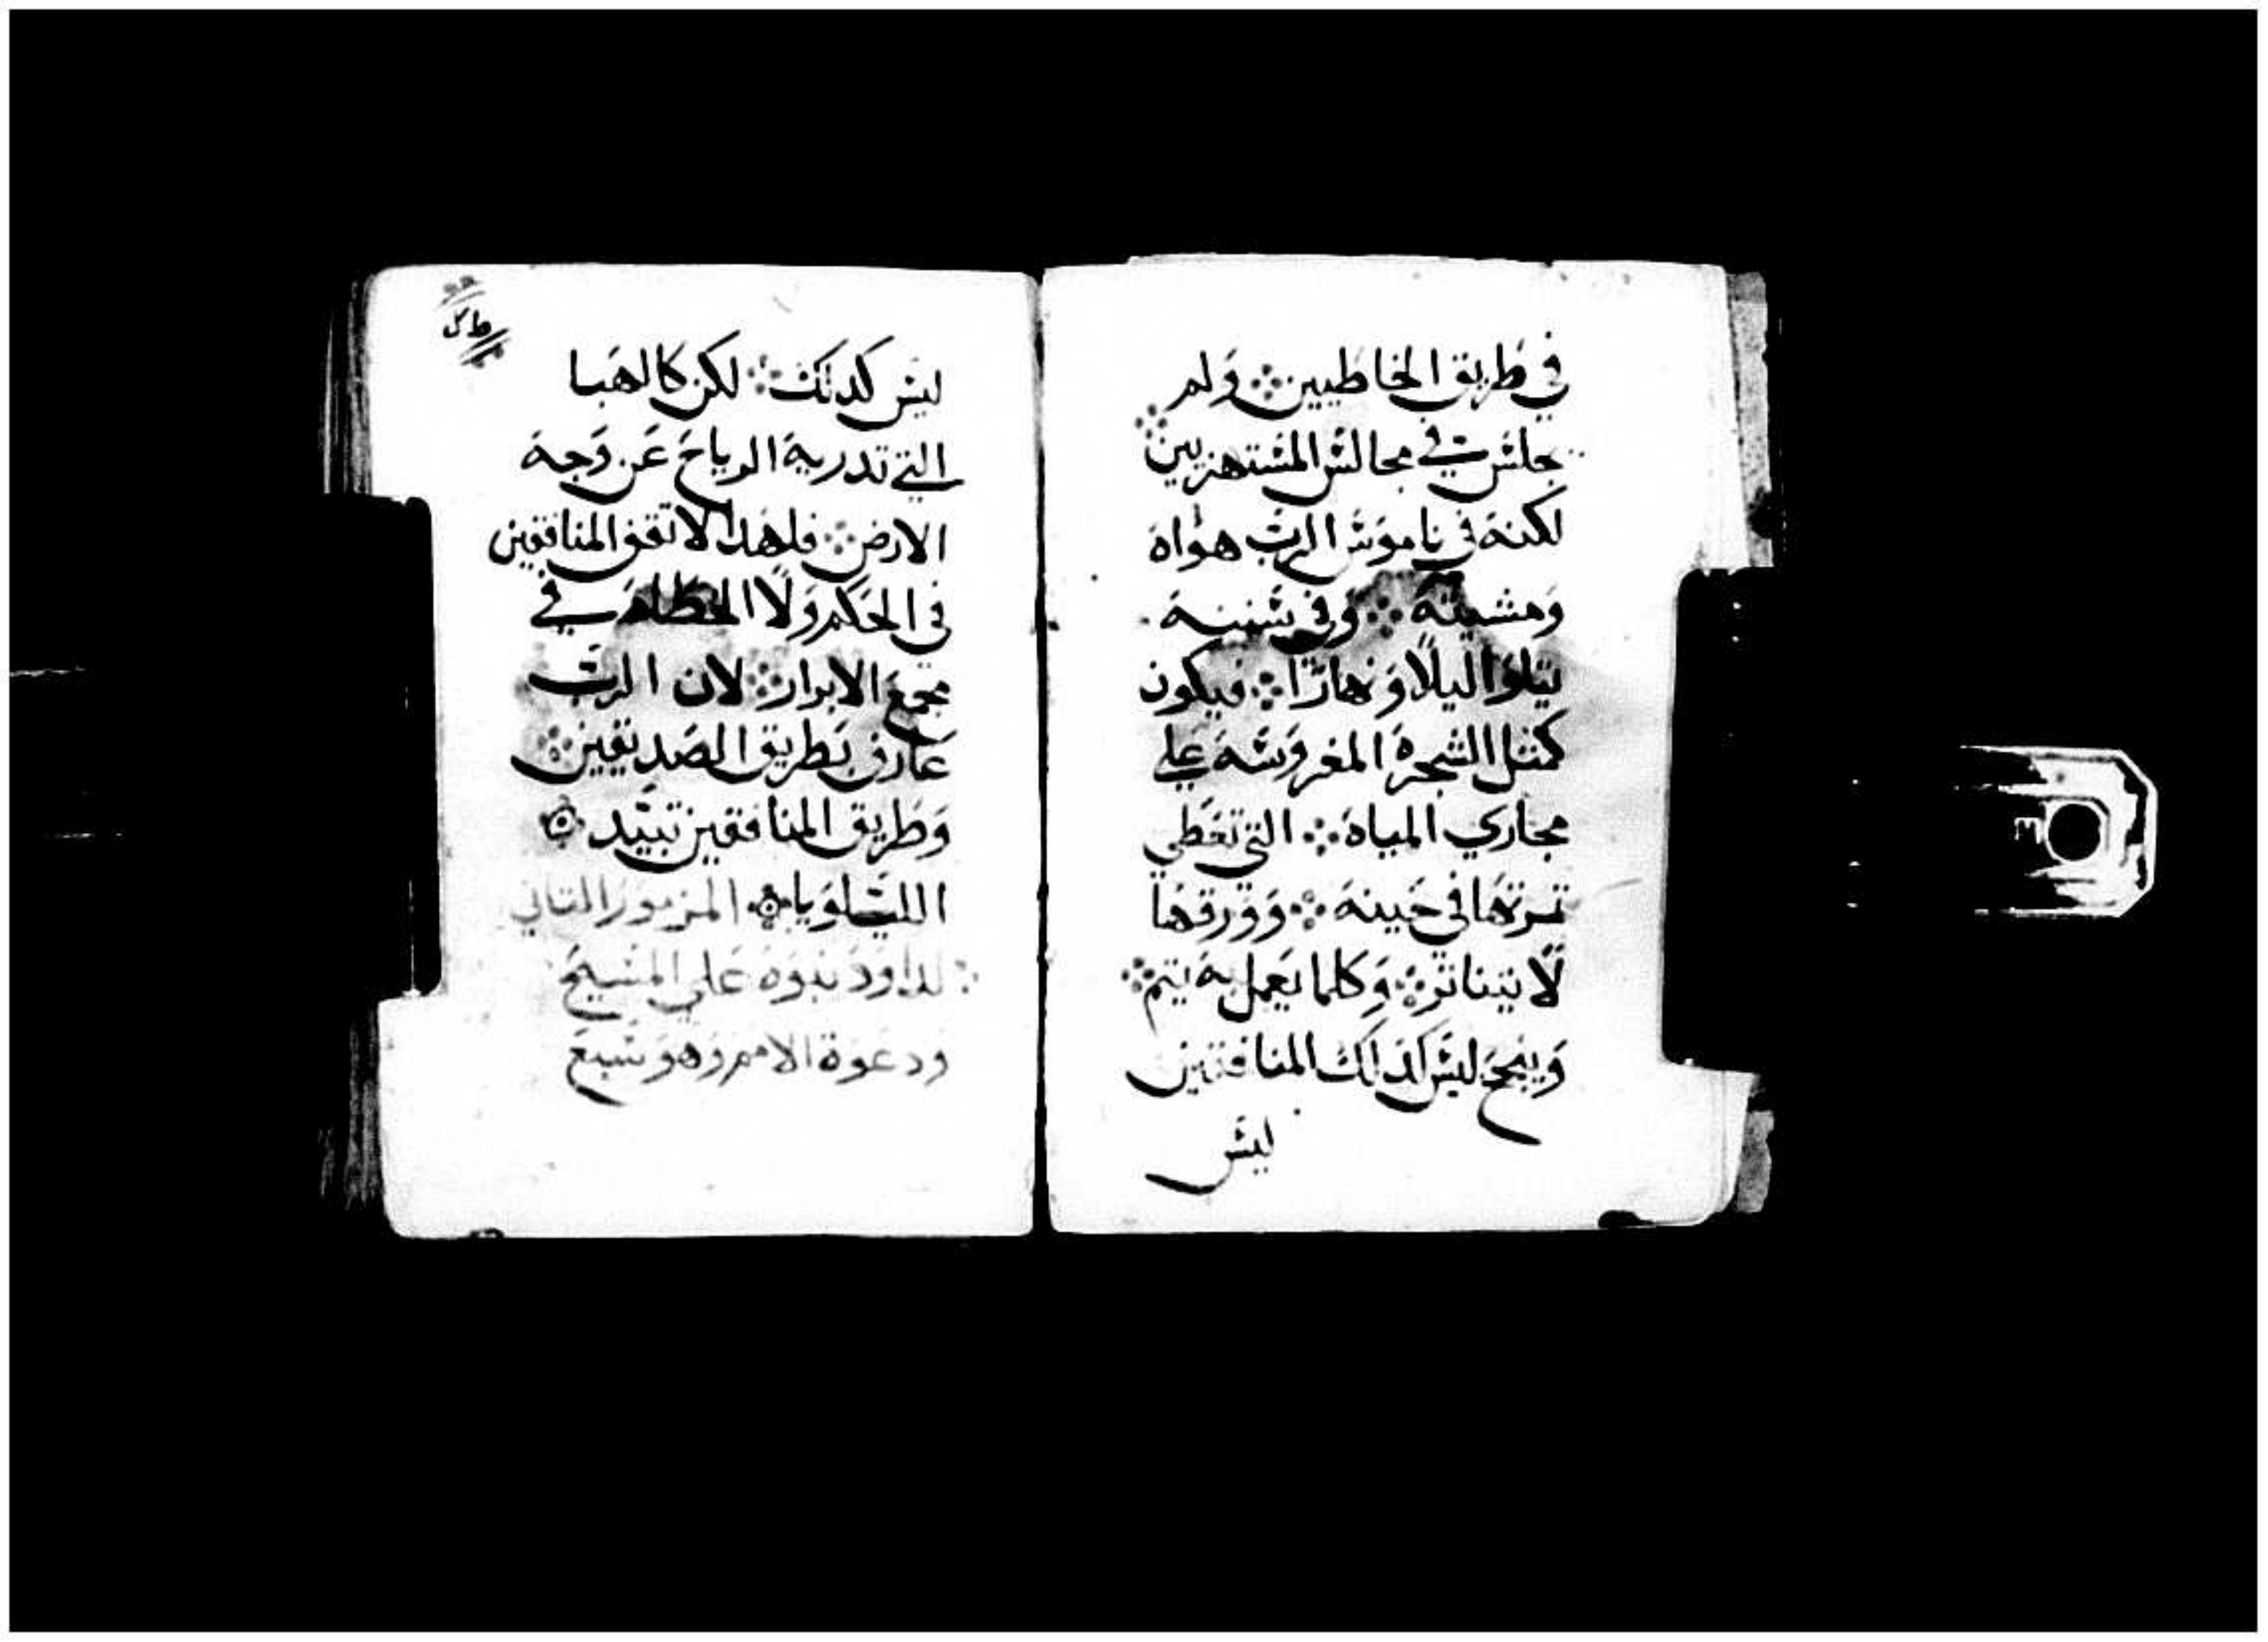 في طريق الخاطيين ولم
يجلس في مجالس المستهزيين
لكنه في ناموس الرب هواه
ومشيته وفي سننه
يتلوا ليلًا ونهارًا فيكون
كمثل الشجره المغروسه علي
مجاري المياه التي تعطي
تمرتها في حينه وورقها
لا يتناتر وكلما يعمل به يتم
وينجح ليس كذلك المنافقين
ليس
ليس كدلك لكن كالهبا
التي تدريه الرياح عن وجه
الارض فلهدا لا تقف المنافقين
في الحكم ولا الخطاه في
مجمع الابرار لان الرب
عارف بطريق الصديقين
وطريق المنافقين تبيد
الليلويا المزمور التاني
لداود نبوه علي المسيح
ودعوة الامم وهو سبع